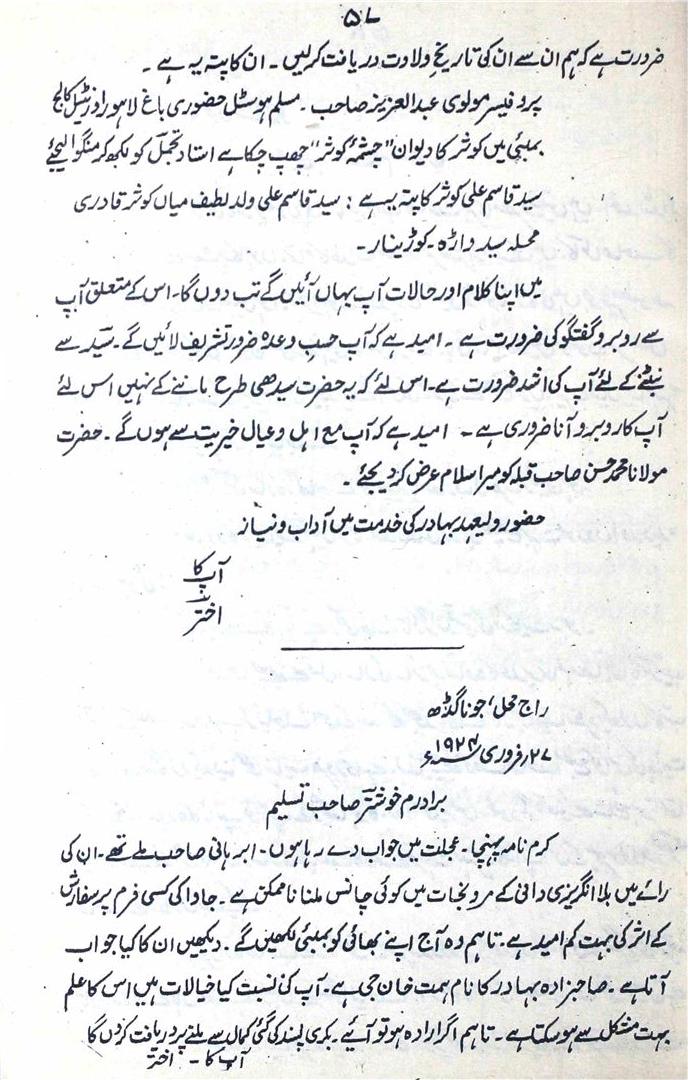 ۵۷
ضرورت ہے کہ ہم ان سے ان کی تاریخِ ولادت دریافت کرلیں ۔ ان کا پتہ یہ ہے ۔
پروفیسر مولوی عبدالعزیز صاحب ۔ مسلم ہوسٹل حضوری باغ لاہور اورنیٹل کالج
بمبئی میں کوثر کا دیوان "چشمۂ کوثر" چھپ چکا ہے استاد تجمل کو لکھ کر منگوا لیجئے
سید قاسم علی کوثر کا پتہ یہ ہے : سید قاسم علی ولد لطیف میاں کوثر قادری
محلہ سید واڑہ ۔ کوڑینار ۔
میں اپنا کلام اور حالات آپ یہاں آئیں گے تب دوں گا ۔ اس کے متعلق آپ
سے روبرو گفتگو کی ضرورت ہے ۔ امید ہے کہ آپ حسبِ وعدہ ضرور تشریف لائیں گے ۔ سیّد سے
نبٹنے کے لئے آپ کی اشد ضرورت ہے ۔ اس لئے کہ یہ حضرت سیدھی طرح ماننے کے نہیں اس لئے
آپ کا روبرو آنا ضروری ہے ۔ امید ہے کہ آپ مع اہل و عیال خیریت سے ہوں گے ۔ حضرت
مولانا محمد حسن صاحب قبلہ کو میرا سلام عرض کر دیجئے ۔
حضور ولیعہد بہادر کی خدمت میں آداب و نیاز
آپ کا
اختر
راج محل، جوناگڈھ
۲۷؍ فروری ۱۹۲۴ء
برادرم خوشتر صاحب تسلیم
کرم نامہ پہنچا ۔ عجلت میں جواب دے رہا ہوں ۔ ابر ہانی صاحب ملے تھے ۔ ان کی
رائے میں بلا انگریزی دانی کے مروجات میں کوئی چانس ملنا ناممکن ہے ۔ جاوا کی کسی فرم پر سفارش
کے اثر کی بہت کم امید ہے ۔ تاہم وہ آج اپنے بھائی کو بمبئی لکھیں گے ۔ دیکھیں ان کا کیا جواب
آتا ہے ۔ صاحبزادہ بہادر کا نام ہمت خان جی ہے ۔ آپ کی نسبت کیا خیالات ہیں اس کا علم
بہت مشکل سے ہو سکتا ہے ۔ تاہم اگر ارادہ ہو تو آئیے ۔ بکری پسند کی گئی کمال سے ملنے پر دریافت کردں گا
آپ کا ۔ اختر